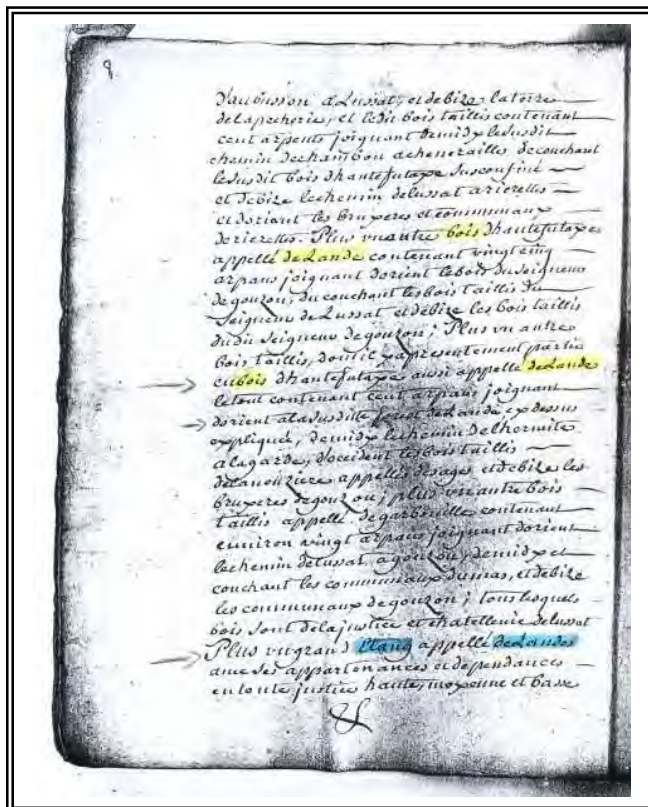 d'aubusson a Lussat, et de bize la terre
de la pecherie, et ledit bois taillis contenant
cent arpents joignant de midy le susdit
chemin de chambon a chenerailles de couchant
le susdit bois d'hautefutaye susconfiné
et de bize le chemin de lussat a rierettes
et d'oriant les bruyeres et communaux
de rierettes. Plus un autre bois d'hautefutaye
appellé de Lande contenant vingt cinq
arpans joignant d'orient le bois du seigneur
de gouzon, du couchant les bois taillis du
seigneur de Lussat et de bize les bois taillis
dudit seigneur de gouzon; Plus un autre
bois taillis, dont il y a presentement partie
en bois d'hautefutaye aussi appellé de Lande
le tout contenant cent arpans joignant
d'orient a la susditte forest de Lande cy dessus
expliquée, de midy le chemin de l'hermite
a la garde, d'occident les bois taillis
de la nouziere appellés des ages et de bize les
bruyeres de gouzon; plus un autre bois
taillis appellé de garbouille contenant
environ vingt arpans joignant d'orient
le chemin de lussat a gouzon, de midy et
couchant les communaux du mas, et de bize
les communaux de gouzon; tous lesquels
bois sont de la justice et chatellenie de lussat
Plus un grand Etang appellé de Landes
avec ses appartenances et dependances
en toute justice haute, moyenne et basse